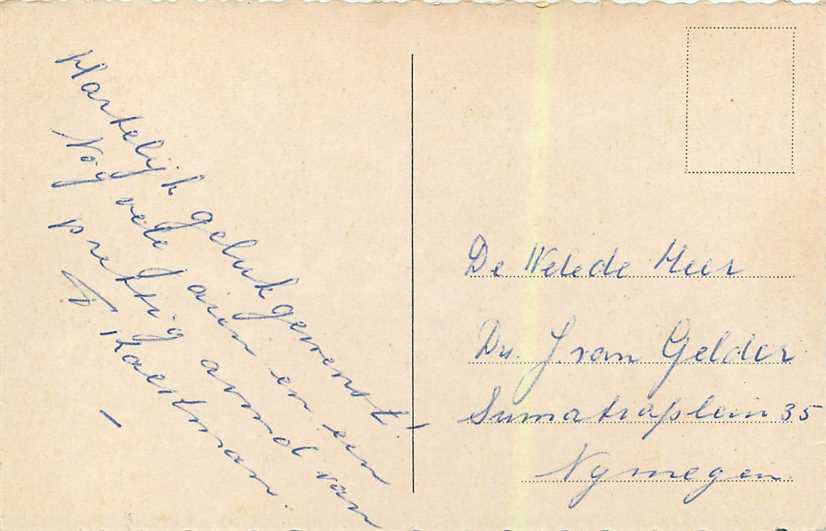 Hartelijk gelukgewenst.
Nog vele jaren en een
prettig avond van
Koertman.
De Weled Heer
Dr. J van Gelder
Sumatraplein 35
Nymegen